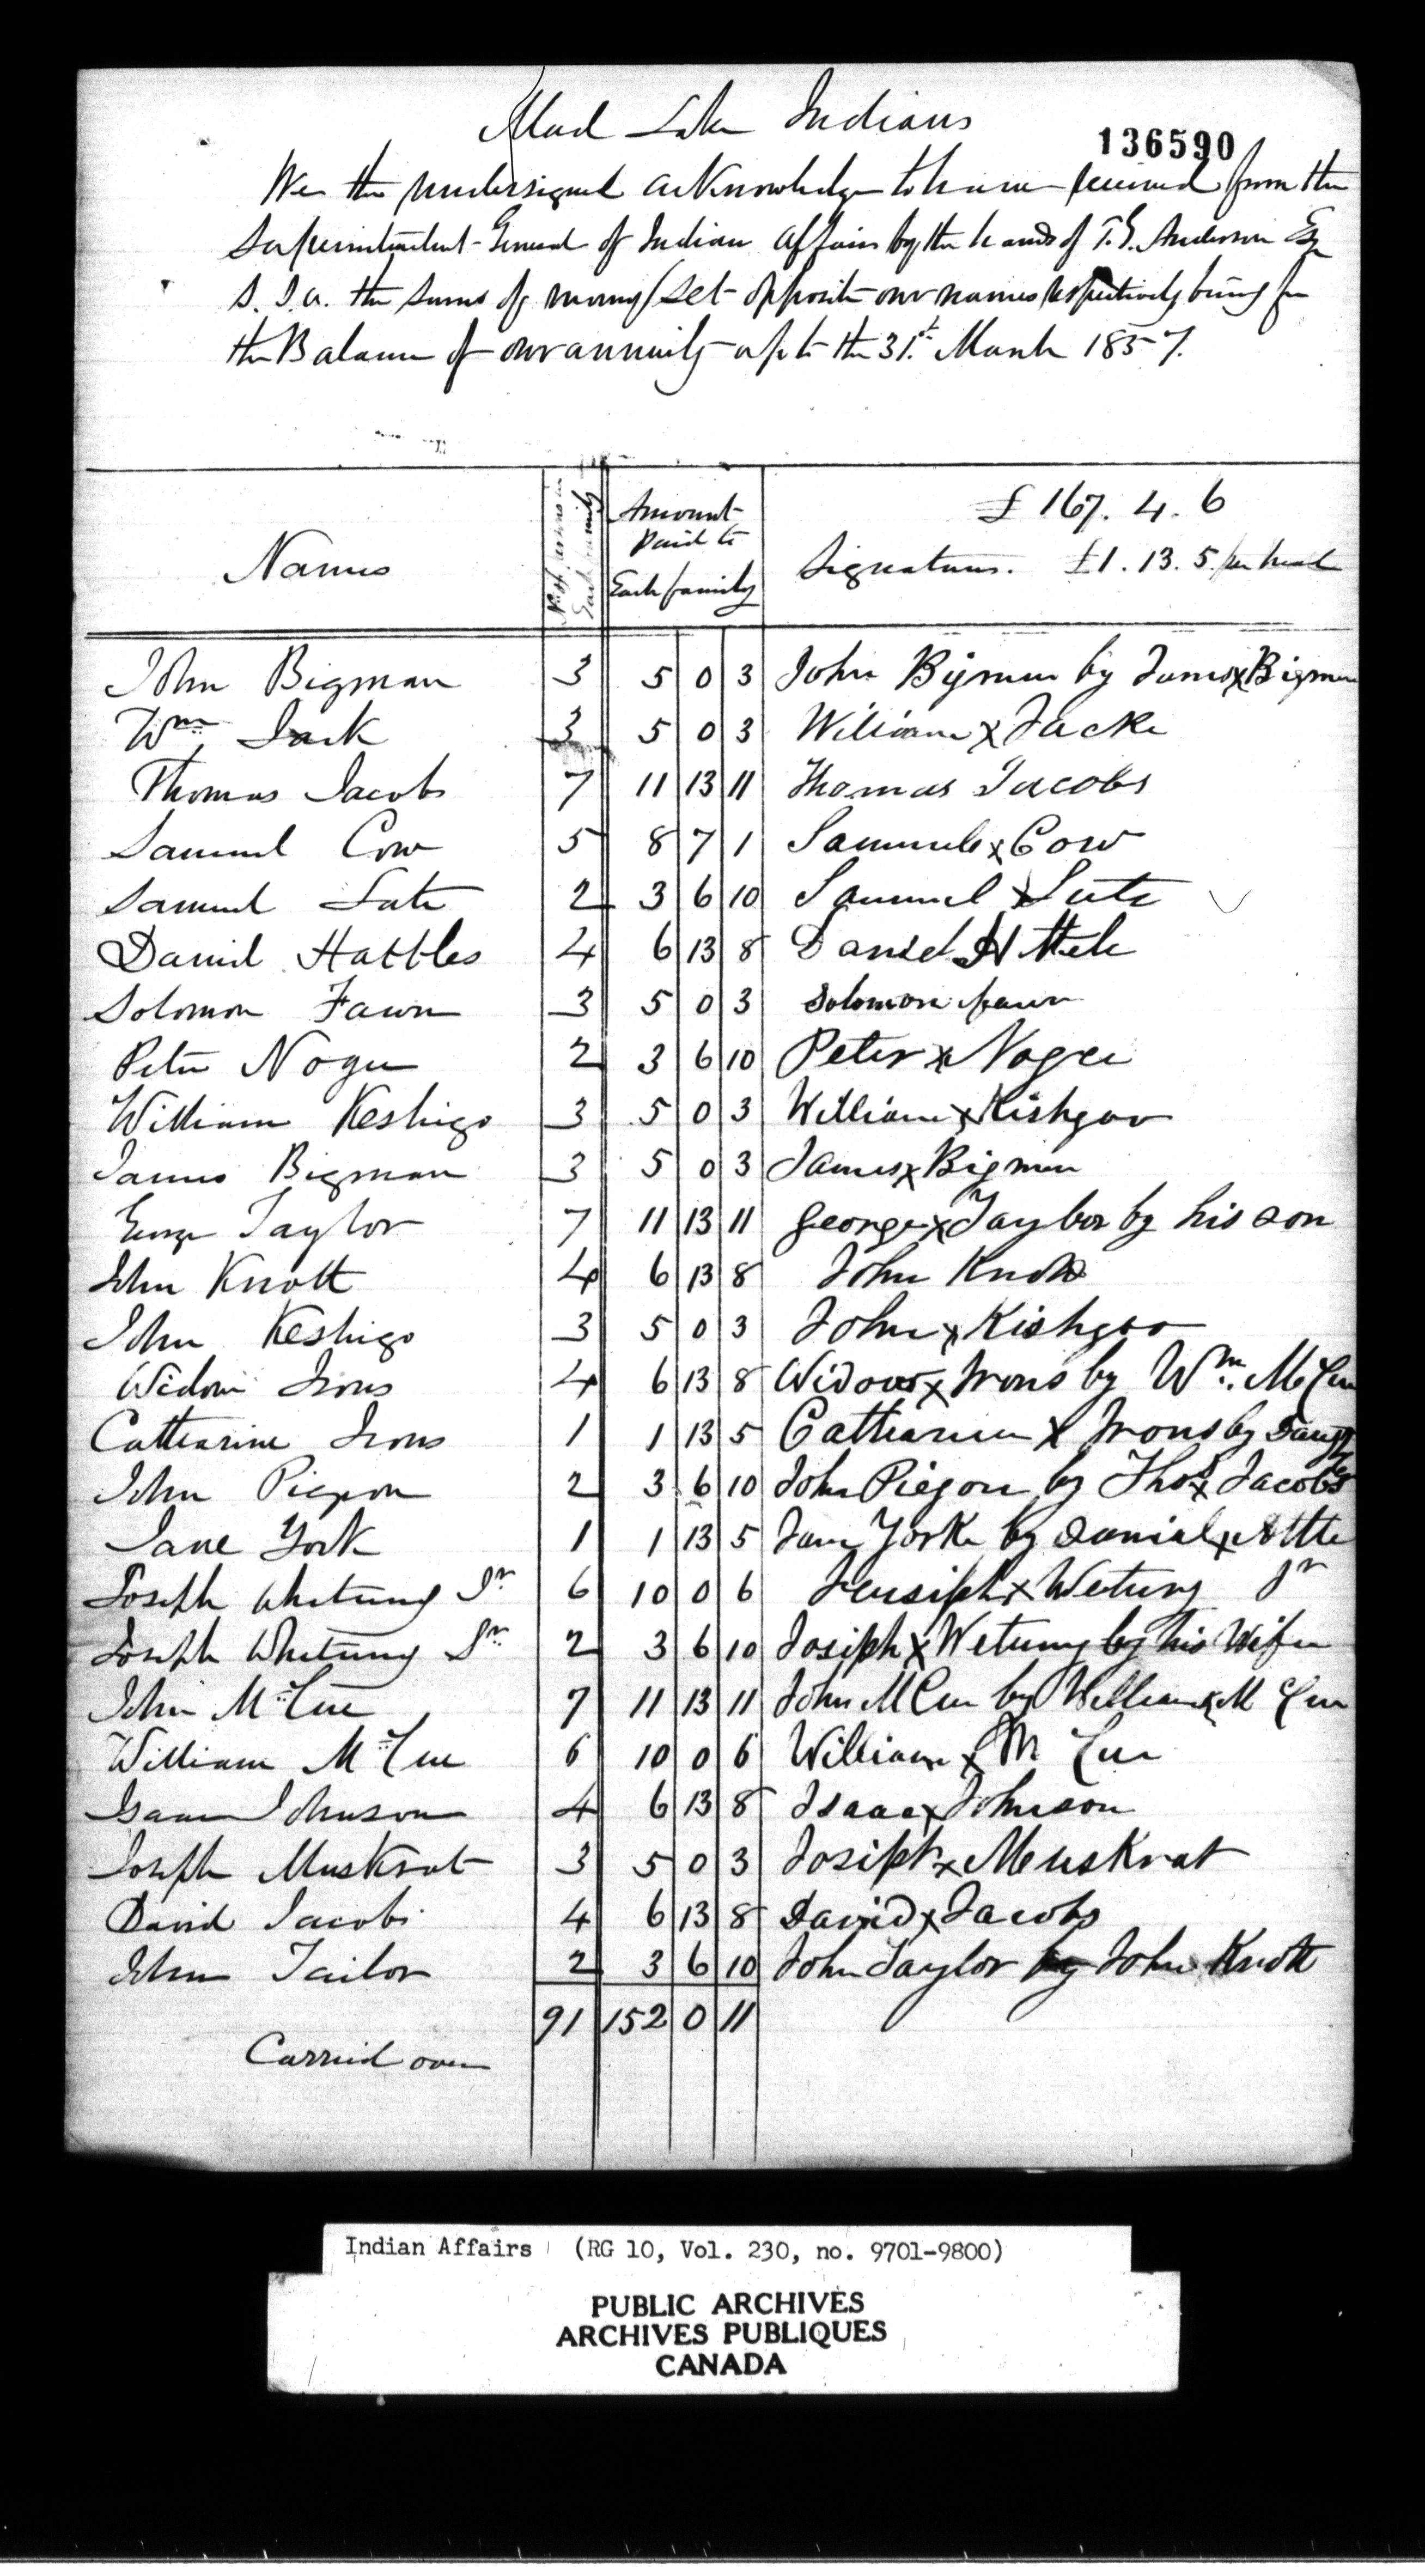 Mud Lake Indians
136590
We the undersigned acknowledge to have received from the
Superintendent General of Indian Affairs by the hands of T. G. Anderson Esq
S. I. A. the sums of money set opposite our names respectively being for
the Balance of our annuity up to the 31st. March 1857.
Names
No. of persons in
Each family
Amount
Paid to
Each family
£ 167. 4. 6
Signatures. £1. 13. 5. per head
John Bigman 3 5 0 3 John Bigman by James x Bigman
Wm. Jack 3 5 0 3 William x Jacke
Thomas Jacobs 7 11 13 11 Thomas Jacobs
Samuel Cow 5 8 7 1 Samuele x Cow
Samuel Lute 2 3 6 10 Samuel x Lute
Daniel Hattles 4 6 13 8 Daniel
Solomon Fawn 3 5 0 3 Solomon fawn
Peter Nogee 2 3 6 10 Peter x Nogee
William Keshigo 3 5 0 3 William x Kishgoo
James Bigman 3 5 0 3 James x Bigman
George Taylor 7 11 13 11 George x Taylor by his son
John Knott 4 6 13 8 John Knott
John Keshigo 3 5 0 3 John x Kishgoo
Widow Irons 4 6 13 8 Widow x Irons by Wm. McCue
Catharine Irons 1 1 13 5 Catharine x Irons by Daughter
John Pigeon 2 3 6 10 John Piegon by Thos x Jacobs
Jane York 1 1 13 5 Jane Yorke by Danial x
Joseph Whetung Jr 6 10 0 6 x Wetung Jr
Joseph Whetung Sr. 2 3 6 10 Josiph x Wetung by his Wife
John McCue 7 11 13 11 John McCue by William x McCue
William McCue 6 10 0 6 William x McCue
Isaac Johnson 4 6 13 8 Isaac x Johnson
Joseph Muskrat 3 5 0 3 Josiph x Meuskrat
David Jacobs 4 6 13 8 David x Jacobs
John Tailor 2 3 6 10 John Taylor by John Knott
91 152 0 11
Carried over
Indian Affairs (RG 10, Vol. 230, no. 9701-9800)
PUBLIC ARCHIVES
ARCHIVES PUBLIQUES
CANADA